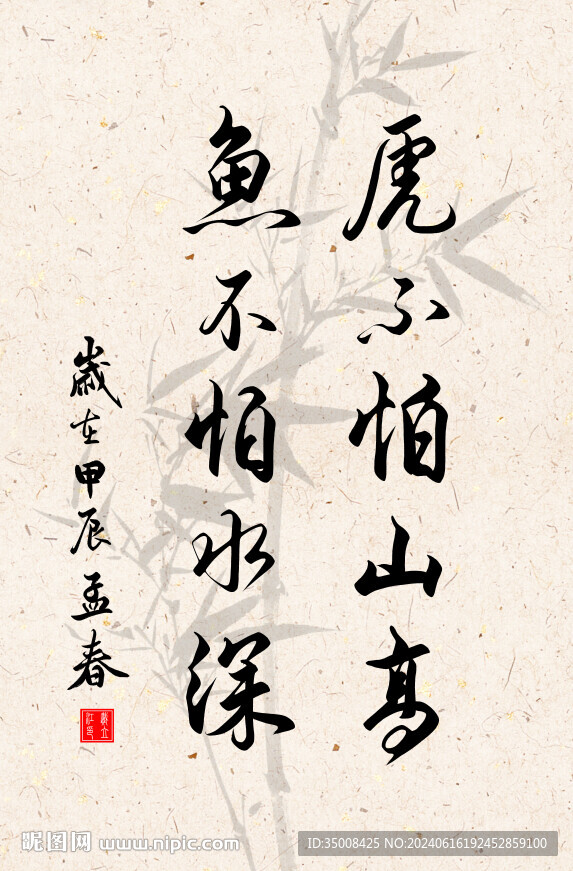 虎不怕山高
魚不怕水深
歲在甲辰孟春
昵图网 www.nipic.com
ID:35008425 NO:20240616192452859100